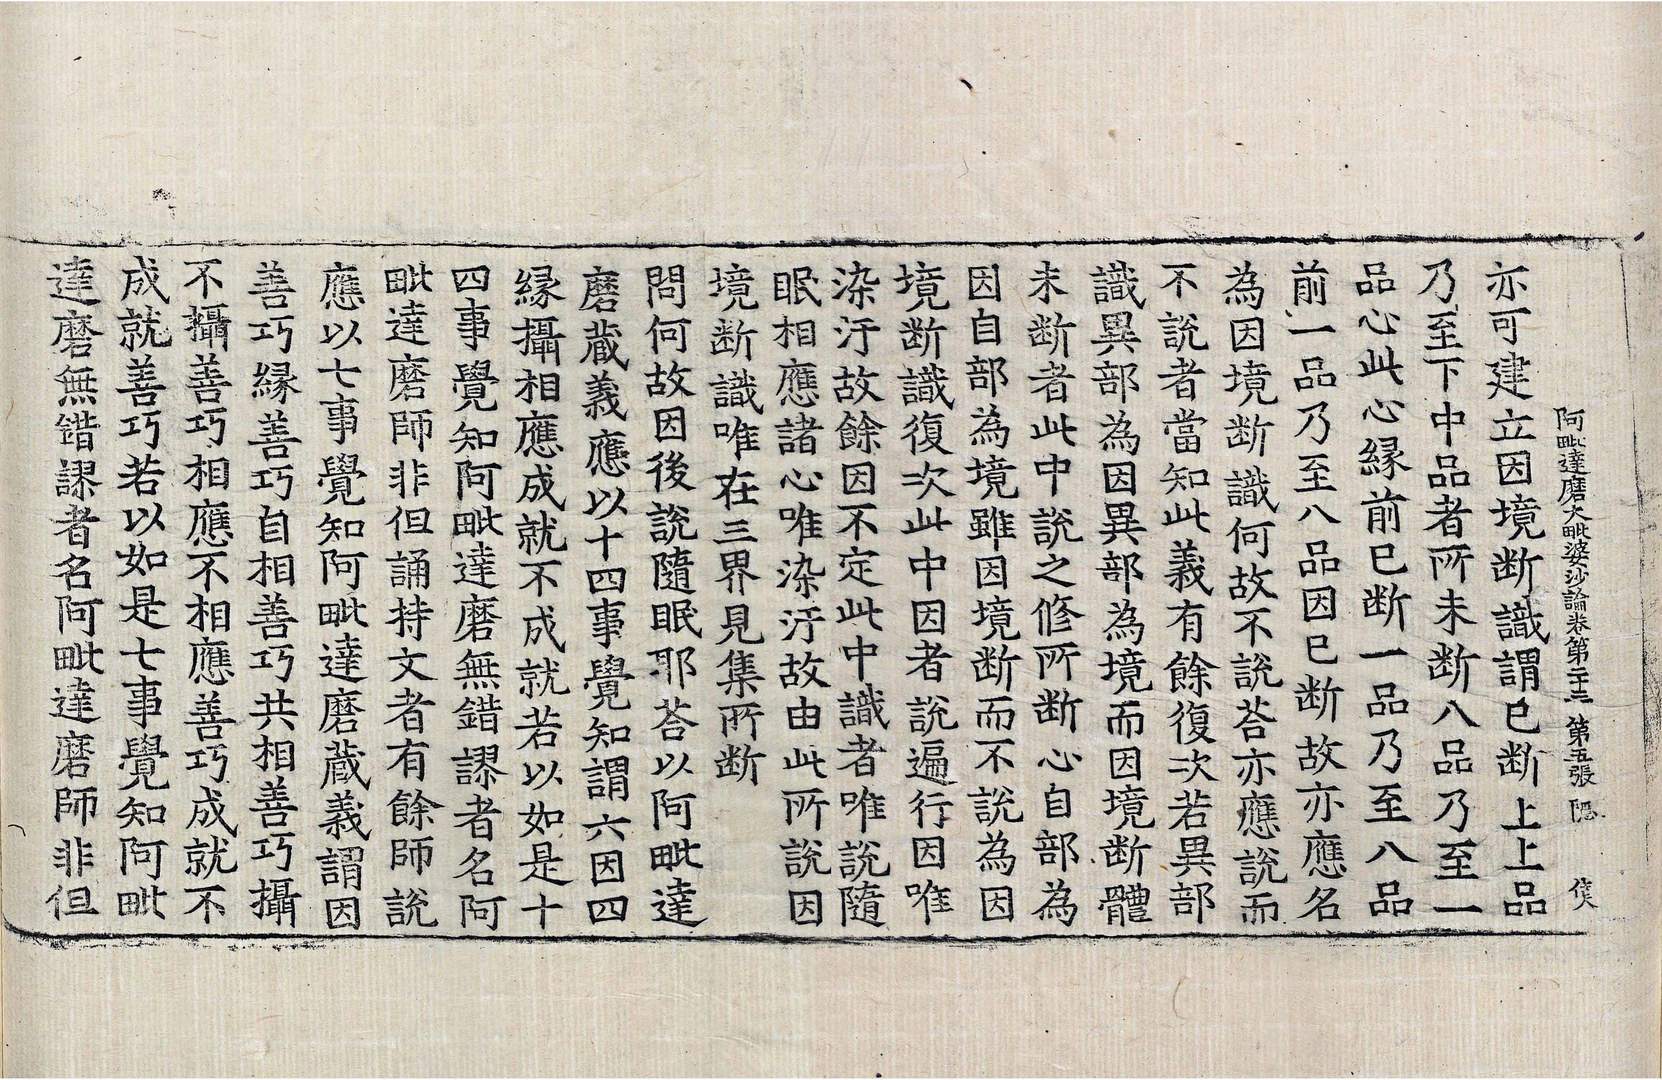 阿毗達磨大毗婆沙論卷第二十三 第五張 隱
亦可建立因境断識謂已断上上品
乃至下中品者所未断八品乃至一
品心此心縁前已断一品乃至八品
前一品乃至八品因已断故亦應名
為因境断識何故不說荅亦應說而
不說者當知此義有餘復次若異部
識異部為因異部為境而因境断體
未断者此中說之修所断心自部為
因自部為境雖因境断而不說為因
境断識復次此中因者說遍行因唯
染汙故餘因不定此中識者唯說隨
眠相應諸心唯染汙故由此所說因
境断識唯在三界見集所断
問何故因後說隨眠耶荅以阿毗達
磨蔵義應以十四事覺知謂六因四
縁攝相應成就不成就若以如是十
四事覺知阿毗達磨無錯謬者名阿
毗達磨師非但誦持文者有餘師說
應以七事覺知阿毗達磨蔵義謂因
善巧縁善巧自相善巧共相善巧攝
不攝善巧相應不相應善巧成就不
成就善巧若以如是七事覺知阿毗
達磨無錯謬者名阿毗達磨師非但